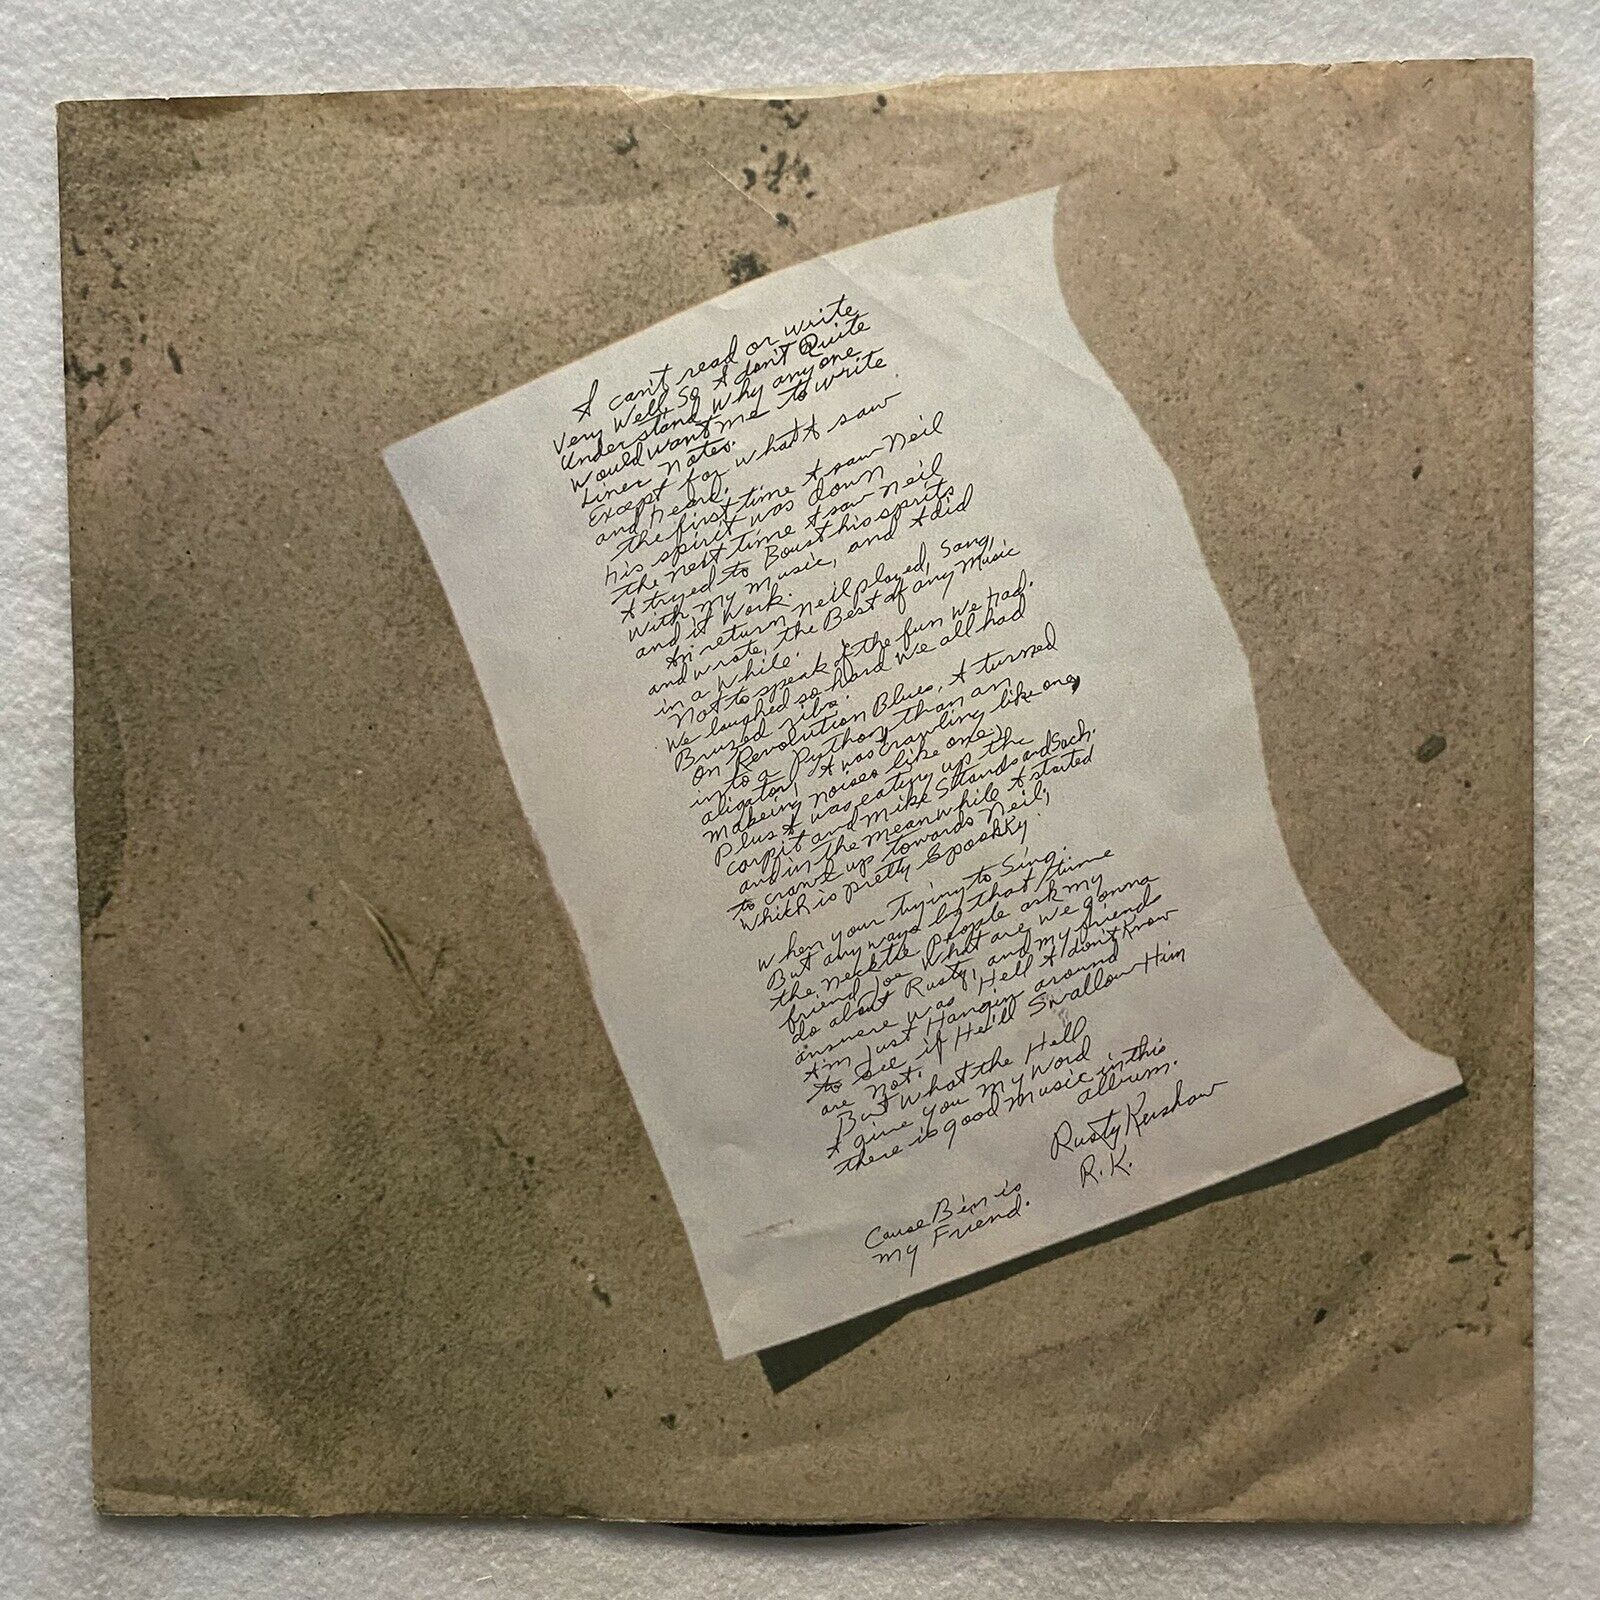 I can't read or write
Very Well, So I don't Quite
Understand Why anyone
Would want me to write
Liner notes.
Except for what I saw
and heard.
the first time I saw Neil
his spirit was down
the next time I saw Neil
I tryed to Boust his spirits
with my music, and I did
and it work.
In return Neil played, Sang,
and wrote, the Best of any Music
in a while.
Not to speak of the fun we had.
We laughed so hard we all had
Bruzed ribs.
On Revolution Blues, I turned
into a Python, than an
aligator, I was crawling like one,
makeing noises like one,
Plus I was eating up the
carpit and mike Stands and Such.
and in the meanwhile I started
to crawl up towards Neil,
Which is pretty Spookky.
when your trying to Sing.
But anyways by that time
the necktie People ask my
friend Joe What are we gonna
do about Rusty, and my friends
answere was Hell I don't Know
I'm Just Hangin around
to see if He'll Swallow Him
are not.
But What the Hell
I give you My Word
there is good Music in this
album.
Rusty Kershaw
R.K.
Cause B'en is
my Friend.